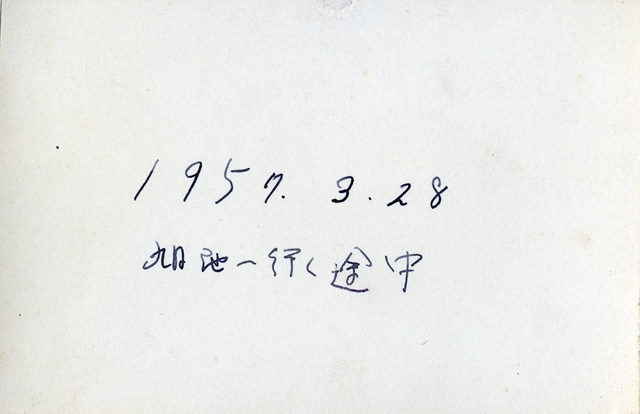 1957. 3. 28
旭池へ行く途中